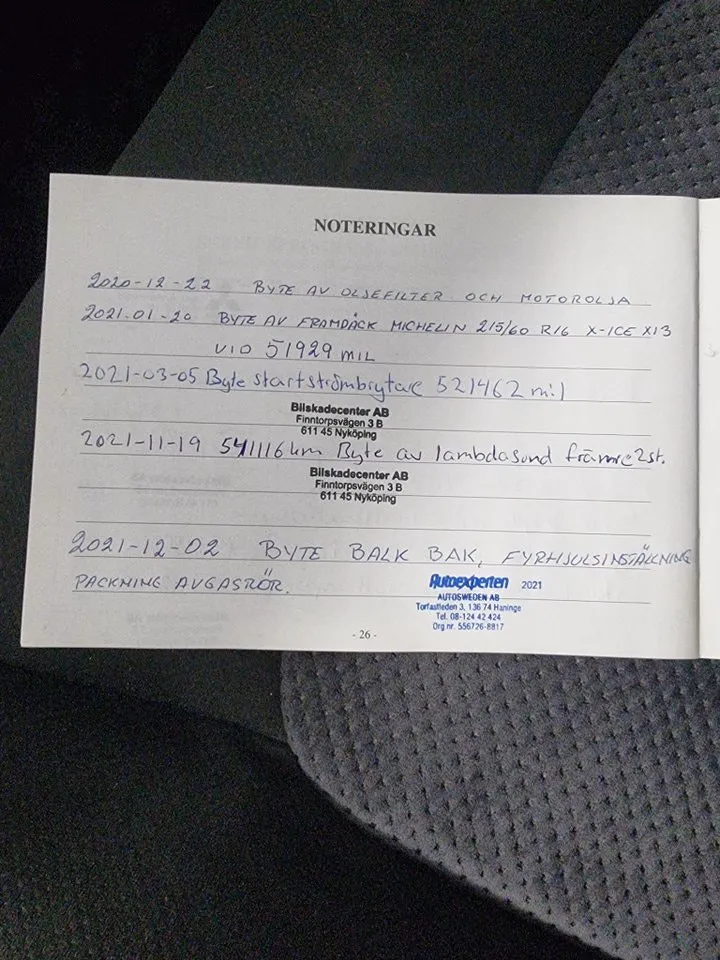 NOTERINGAR
2020-12-22 BYTE AV OLJEFILTER OCH MOTOROLJA
2021.01-20 BYTE AV FRAMDÄCK MICHELIN 215/60 R16 X-ICE XI3
VID 51929 MIL
2021-03-05 Byte startströmbrytare 521462 mil
Bilskadecenter AB
Finntorpsvägen 3 B
611 45 Nyköping
2021-11-19 541116 km Byte av lambdasond främre 2st.
Bilskadecenter AB
Finntorpsvägen 3 B
611 45 Nyköping
2021-12-02 BYTE BALK BAK, FYRHJULSINSTÄLLNING
PACKNING AVGASRÖR.
Autoexperten 2021
AUTOSWEDEN AB
Torfastleden 3, 136 74 Haninge
Tel. 08-124 42 424
Org nr. 556726-8817
- 26 -